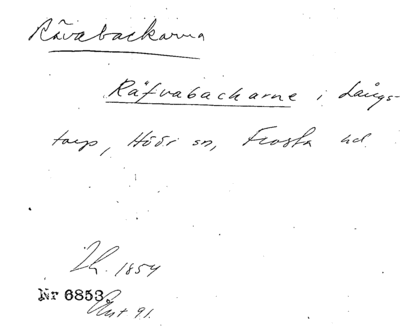 Rävabackarna
Räfvabackarne i Långs-
torp, Höör sn, Frosta hd
1854
Nr 6853.
91.